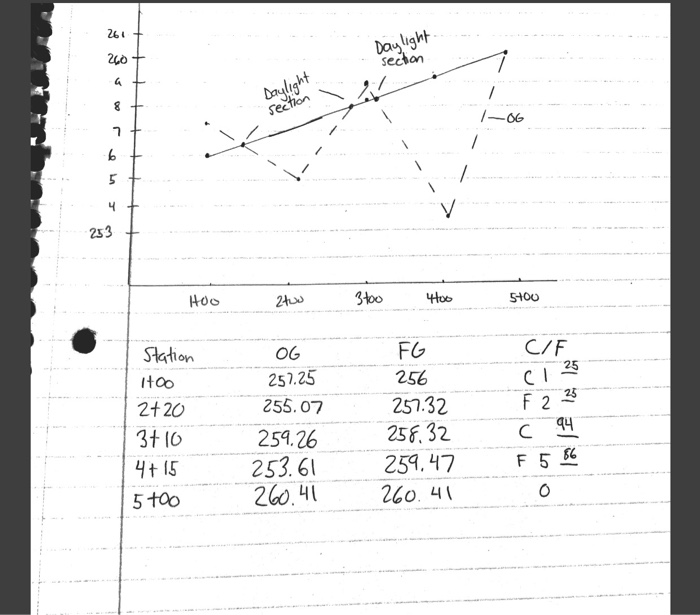 261
260
9
8
7
6
5
4
253
Daylight
section
Daylight
section
OG
1+00
2+00
3+00
4+00
5+00
Station OG FG C/F
1+00 257.25 256 C 1 25
2+20 255.07 257.32 F 2 25
3+10 259.26 258.32 C 94
4+15 253.61 259.47 F 5 86
5+00 260.41 260.41 0